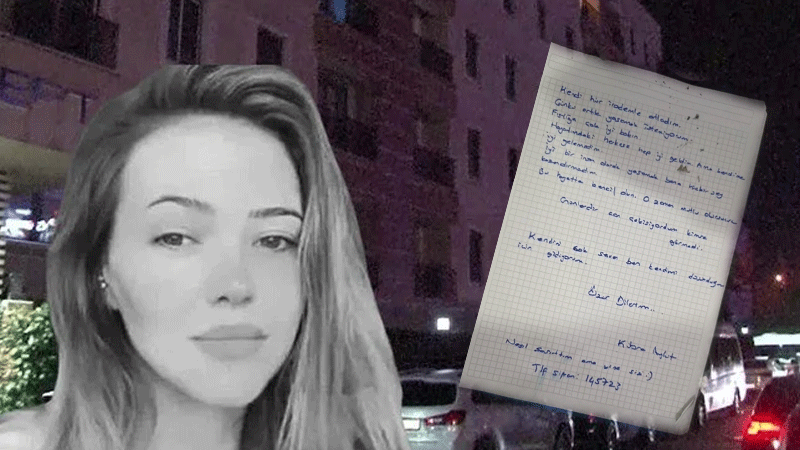 Kendi hür irademle atladım.
Çünkü artık yaşamak istemiyorum.
Fıstığa çok iyi bakın
Hayatımdaki herkese hep iyi geldim Ama kendime
iyi gelemedim.
İyi bir insan olarak yaşamak bana hiçbir şey
kazandırmadı.
Bu hayatta bencil olun. O zaman mutlu olursunuz.
Günlerdir can çekişiyordum kimse
görmedi.
Kendimi çok seve ben kendimi düşündüğüm
için gidiyorum.
Özür Dilerim..
Kübra
Nasıl ama :)
Tlf şifre: 145723